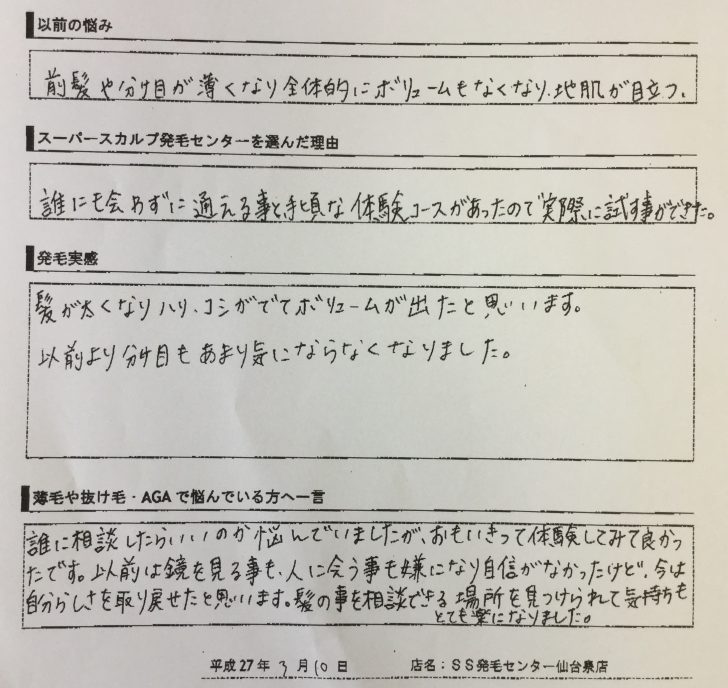 以前の悩み
前髪や分け目が薄くなり全体的にボリュームもなくなり、地肌が目立つ。
スーパースカルプ発毛センターを選んだ理由
誰にも会わずに通える事と、手頃な体験コースがあったので実際に試す事ができた。
発毛実感
髪が太くなりハリ、コシがでてボリュームが出たと思いいます。
以前より分け目もあまり気にならなくなりました。
薄毛や抜け毛・AGAで悩んでいる方へ一言
誰に相談したらいいのか悩んでいましたが、おもいきって体験してみて良かっ
たです。以前は鏡を見る事も、人に会う事も嫌になり自信がなかったけど、今は
自分らしさを取り戻せたと思います。髪の事を相談できる場所を見つけられて気持ちも
とても楽になりました。
平成27年3月10日 店名：SS発毛センター仙台泉店